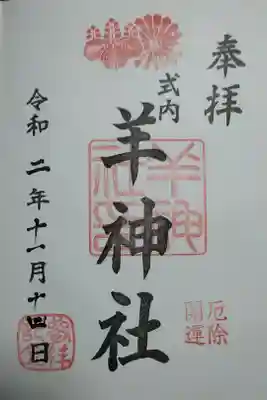 奉拝
式内
羊神社
羊神社印
厄除
開運
令和二年十一月十四日